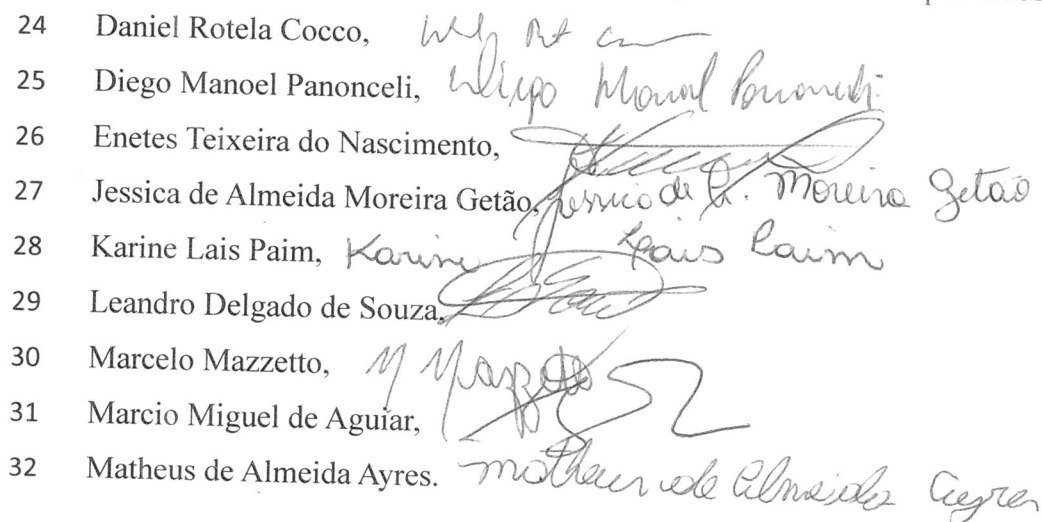 24 Daniel Rotela Cocco,
25 Diego Manoel Panonceli, Diego Manoel Panonceli
26 Enetes Teixeira do Nascimento,
27 Jessica de Almeida Moreira Getão, Jessica de A. Moreira Getão
28 Karine Lais Paim, Karine Lais Paim
29 Leandro Delgado de Souza,
30 Marcelo Mazzetto, M Mazzetto
31 Marcio Miguel de Aguiar,
32 Matheus de Almeida Ayres. Matheus de Almeida Ayres